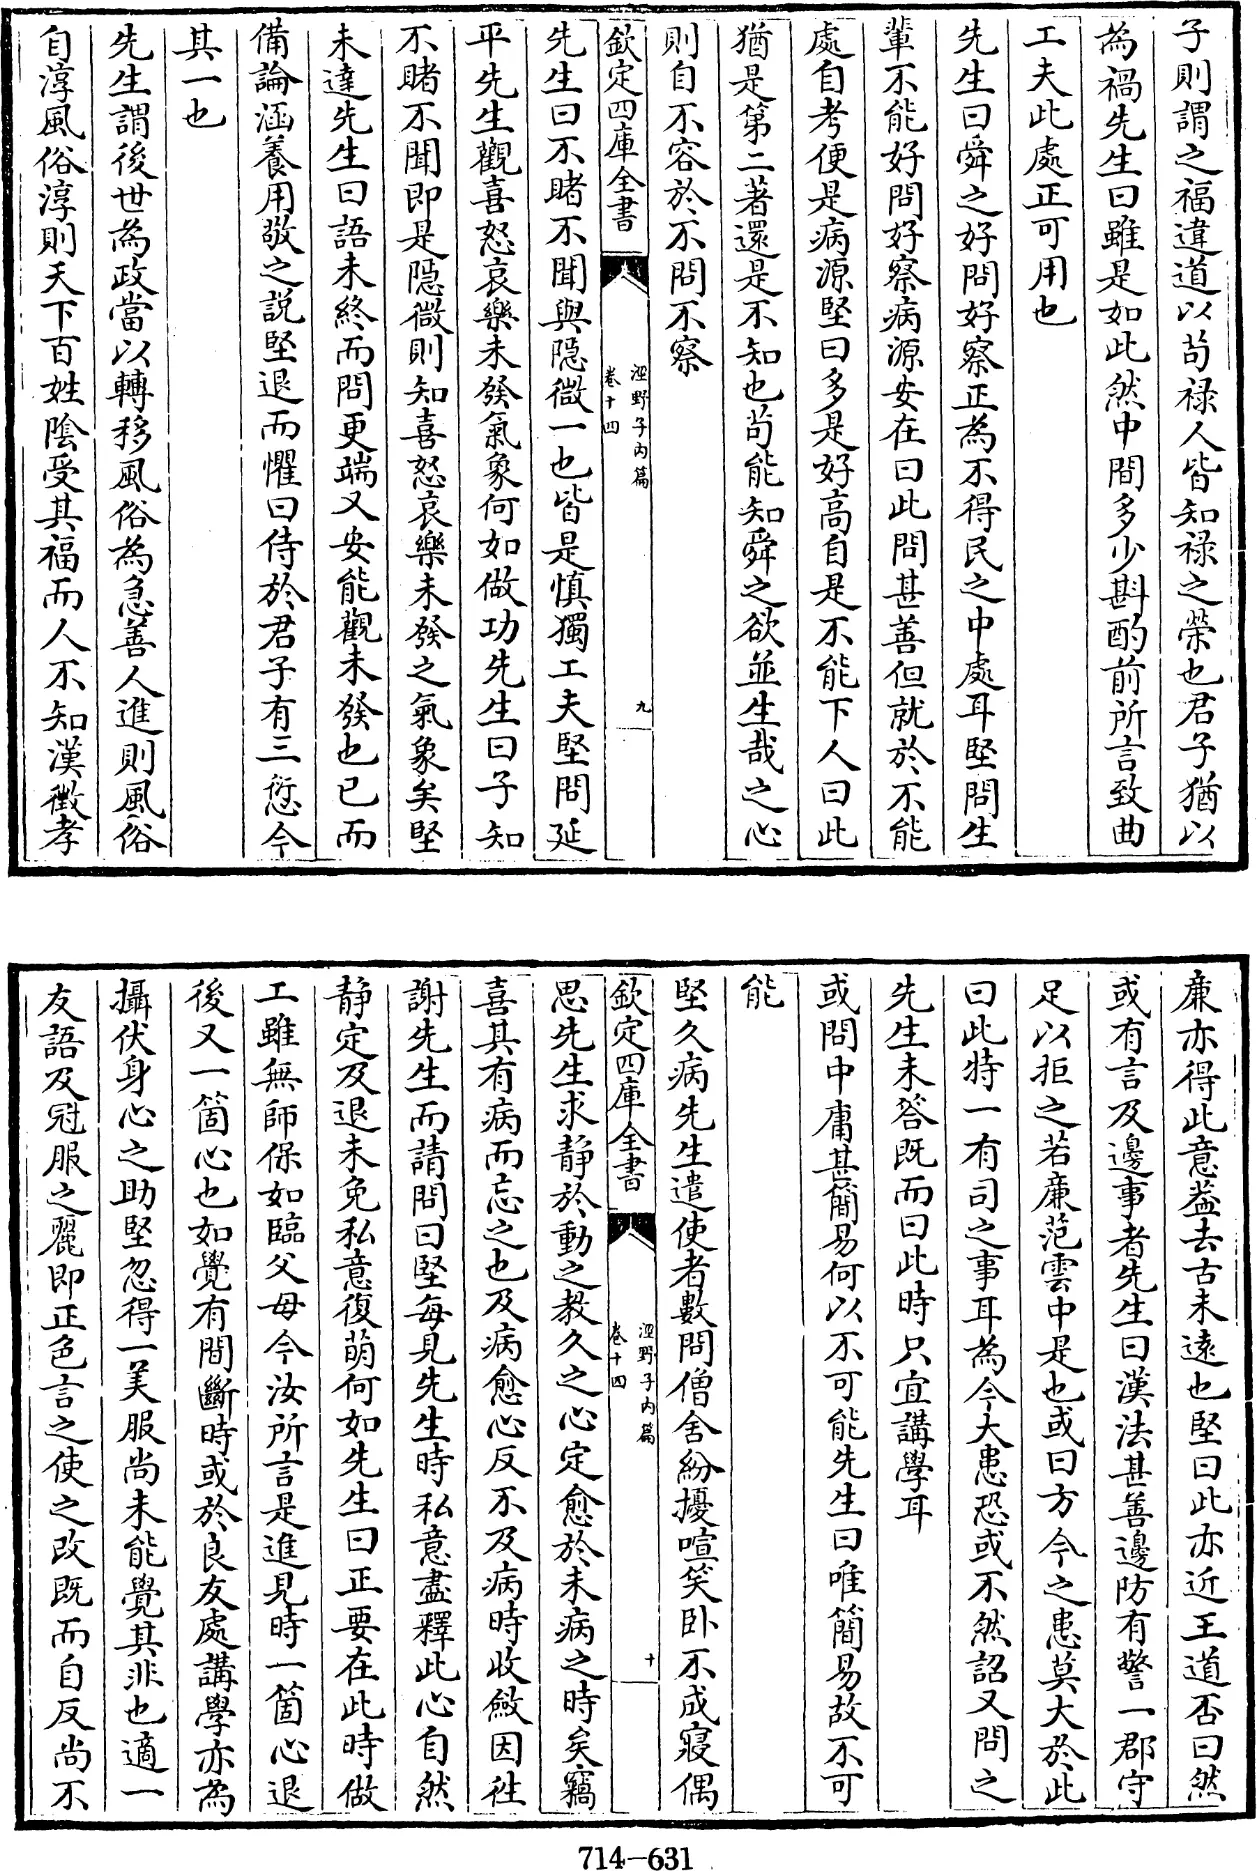 子則謂之福違道以茍禄人皆知禄之榮也君子猶以
為禍先生曰雖是如此然中間多少斟酌前所言致曲
工夫此處正可用也
先生曰舜之好問好察正為不得民之中處耳堅問生
輩不能好問好察病源安在曰此問甚善但就於不能
處自考便是病源堅曰多是好高自是不能下人曰此
猶是第二著還是不知也茍能知舜之欲並生哉之心
則自不容於不問不察
欽定四庫全書
涇野子內篇
卷十四
九
先生曰不睹不聞與隐微一也皆是慎獨工夫堅問延
平先生觀喜怒哀樂未發氣象何如做功先生曰子知
不睹不聞即是隐微則知喜怒哀樂未發之氣象矣堅
未達先生曰語未終而問更端又安能觀未發也已而
備論涵養用敬之説堅退而懼曰侍於君子有三愆今
其一也
先生謂後世為政當以轉移風俗為急善人進則風俗
自淳風俗淳則天下百姓陰受其福而人不知漢徵孝
廉亦得此意葢去古未遠也堅曰此亦近王道否曰然
或有言及邊事者先生曰漢法甚善邊防有警一郡守
足以拒之若廉范雲中是也或曰方今之患莫大於此
曰此特一有司之事耳為今大患恐或不然詔又問之
先生未答既而曰此時只宜講學耳
或問中庸甚簡易何以不可能先生曰唯簡易故不可
能
堅久病先生遣使者數問僧舍紛擾喧笑卧不成寢偶
欽定四庫全書
涇野子內篇
卷十四
十
思先生求靜於動之教久之心定愈於未病之時矣竊
喜其有病而忘之也及病愈心反不及病時收斂因往
謝先生而請問曰堅每見先生時私意盡釋此心自然
靜定及退未免私意復萌何如先生曰正要在此時做
工雖無師保如臨父母今汝所言是進見時一箇心退
後又一箇心也如覺有間斷時或於良友處講學亦為
攝伏身心之助堅忽得一美服尚未能覺其非也適一
友語及冠服之麗即正色言之使之改既而自反尚不
714-631